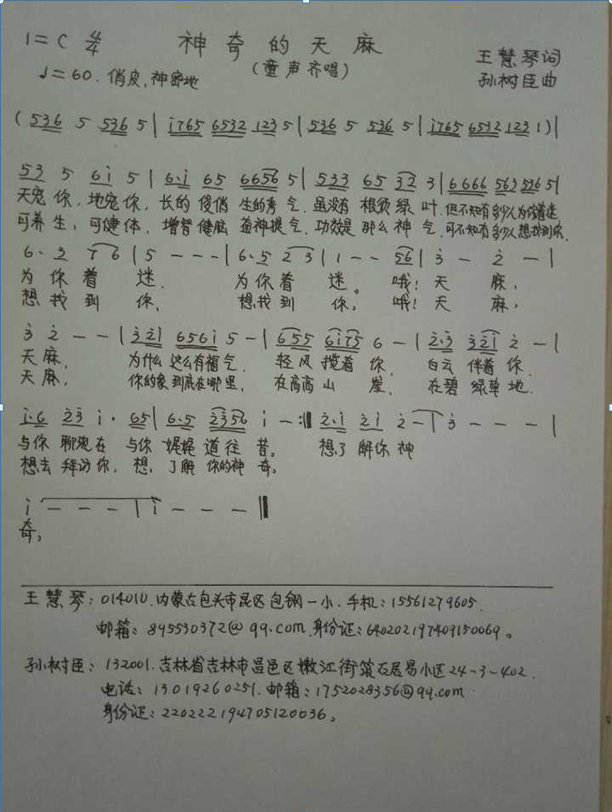 1=C 4/4 神奇的天麻 王慧琴词
♩=60. 俏皮,神密地 (童声齐唱) 孙树臣曲
( 536 5 536 5 | i765 6532 123 5 | 536 5 536 5 | i765 6532 123 1 ) |
53 5 6i 5 | 6·i 65 6656 5 | 533 65 32 3 | 6666 563 5365 5 |
天宠你,地宠你,长的俊俏 生的秀气.虽没有 根须绿叶.但不知有多少人为你着迷
可养生,可健体,增智健脑 益神提气.功效是那么神气.可不知有多少人想找到你.
6·2 76 | 5 - - - | 6·5 23 | 1 - - 56 | 3 - 2 - |
为你着迷. 为你着迷。 哦!天麻,
想找到你, 想找到你。 哦!天麻,
3 2 - - | 321 6561 5 - | 655 6175 6 - | 2·3 321 2 - |
天麻, 为什么这么有福气. 轻风揽着你, 白云伴着你.
天麻, 你的家到底在哪里, 在高高山崖, 在碧绿草地.
i·6 23 i· 65 | 6·5 2356 i - :‖ 2·i 2i 2 - | 3 - - - |
与你聊现在 与你娓娓道往昔。 想了解你神
想去拜访你, 想,了解你的神奇。
i - - - | i - - - ‖
奇。
王慧琴:014010.内蒙古包头市昆区包钢一小.手机:15561279605.
邮箱:895530372@qq.com.身份证:640202197409150069。
孙树臣:132001.吉林省吉林市昌邑区嫩江街筑石居易小区24-3-402.
电话:13019260251.邮箱:1752028356@qq.com
身份证:220222194705120036。